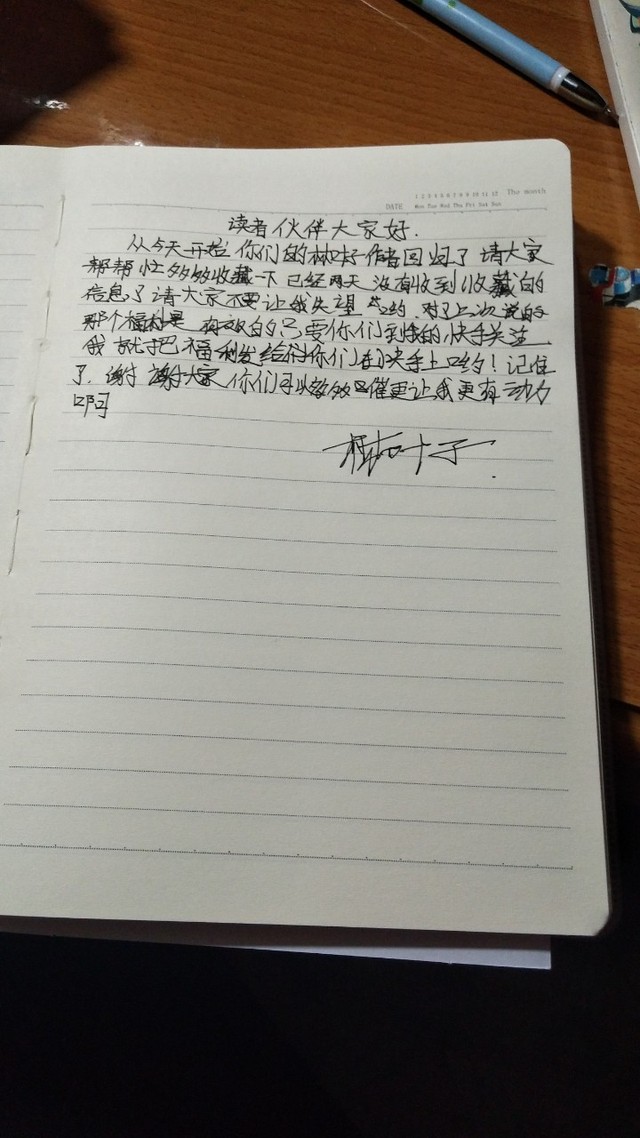 DATE
1 2 3 4 5 6 7 8 9 10 11 12 The month
Mon Tue Wed Thu Fri Sat Sun
读者伙伴大家好.
从今天开始 你们的 作者回归了 请大家
帮帮忙多多收藏一下 已经两天 没有收到收藏的
信息了请大家不要让我失望 对了上次说的
那个福利是 有效的只要你们到我的快手关注
我就把福利发给你们在快手上 哟！记住
了. 谢谢大家 你们可以多多 催更让我更有动力
啊
叶子